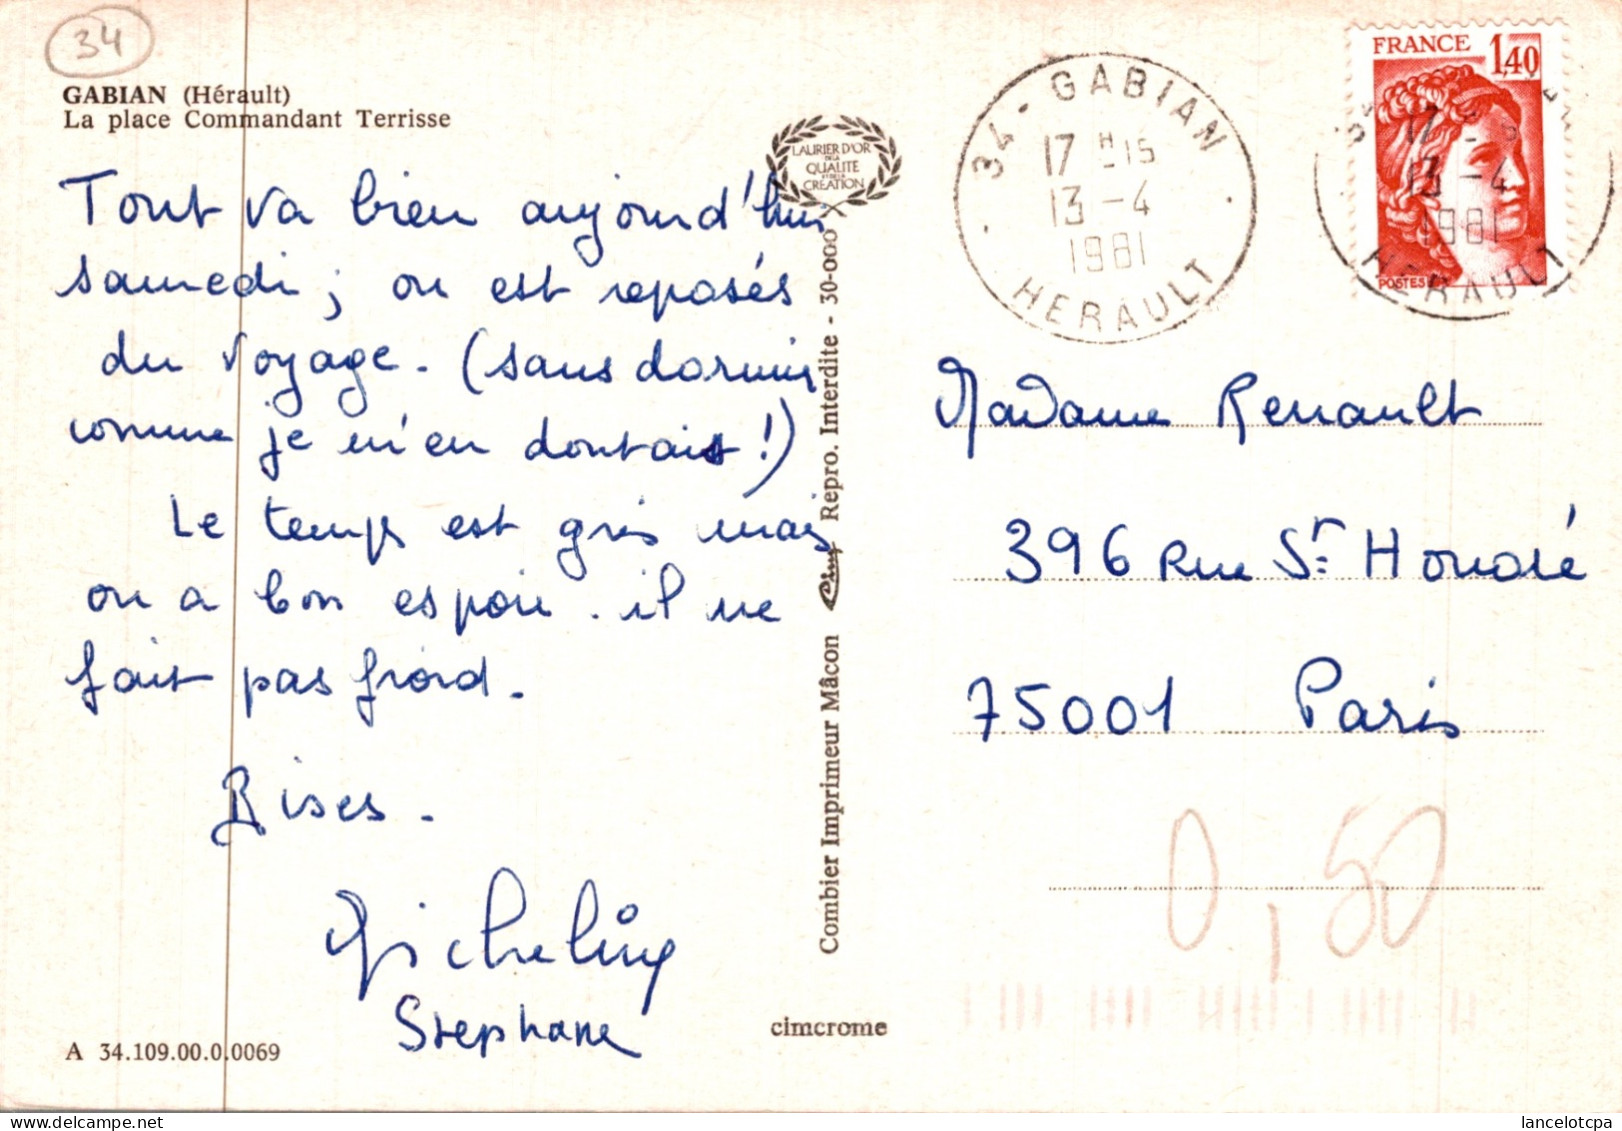 34
GABIAN (Hérault)
La place Commandant Terrisse
Tout va bien aujourd'hui
samedi ; on est reposés
du voyage. (sans dormir
comme je m'en doutais !)
Le temps est gris mais
on a bon espoir. il ne
fait pas froid.
Bises.
Micheline
Stephane
A 34.109.00.0.0069
LAURIER D'OR
DE LA
QUALITE
ET DE LA
CRÉATION
Combier Imprimeur Mâcon
Repro. Interdite - 30-000
cimcrome
34 - GABIAN
17 H 15
13 - 4
1981
HERAULT
FRANCE 1,40
POSTES
13 - 4
1981
HERAULT
Madame Renault
396 Rue St Honoré
75001 Paris
0,50
lancelotcpa